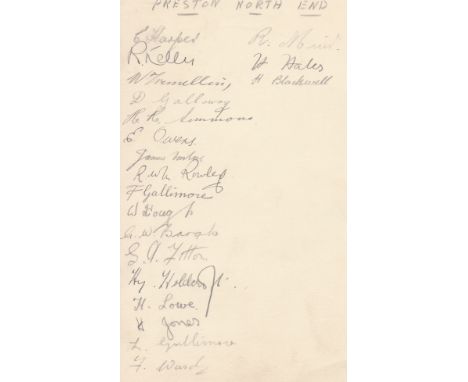 PRESTON NORTH END
E Harper
R. Kelly
W Tremelling
D Galloway
H. R. Simmons
E Owens
R W Rowley
F Gallimore
W Gough
G W Bargh
G. A. Fitton
Hy. Holdcroft
H. Lowe
Jones
L. Gallimore
F. Ward
R.
W Hales
H Blackwell